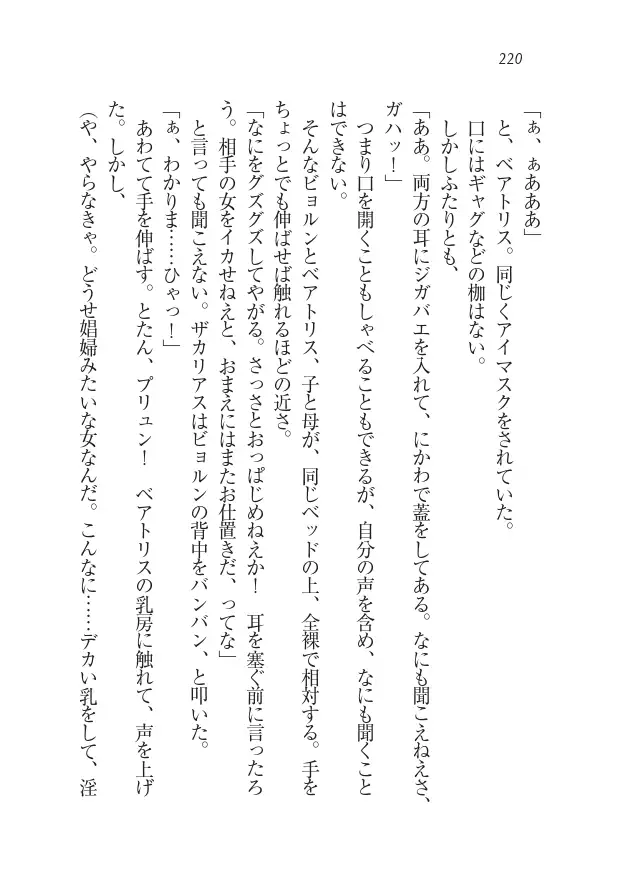 220
「ぁ、ぁあああ」
と、ベアトリス。同じくアイマスクをされていた。
口にはギャグなどの枷はない。
しかしふたりとも、
「ああ。両方の耳にジガバエを入れて、にかわで蓋をしてある。なにも聞こえねえさ、
ガハッ！」
つまり口を開くこともしゃべることもできるが、自分の声を含め、なにも聞くこと
はできない。
そんなビョルンとベアトリス、子と母が、同じベッドの上、全裸で相対する。手を
ちょっとでも伸ばせば触れるほどの近さ。
「なにをグズグズしてやがる。さっさとおっぱじめねえか！　耳を塞ぐ前に言ったろ
う。相手の女をイカせねえと、おまえにはまたお仕置きだ、ってな」
と言っても聞こえない。ザカリアスはビョルンの背中をバンバン、と叩いた。
「ぁ、わかりま……ひゃっ！」
あわてて手を伸ばす。とたん、プリュン！　ベアトリスの乳房に触れて、声を上げ
た。しかし、
（や、やらなきゃ。どうせ娼婦みたいな女なんだ。こんなに……デカい乳をして、淫